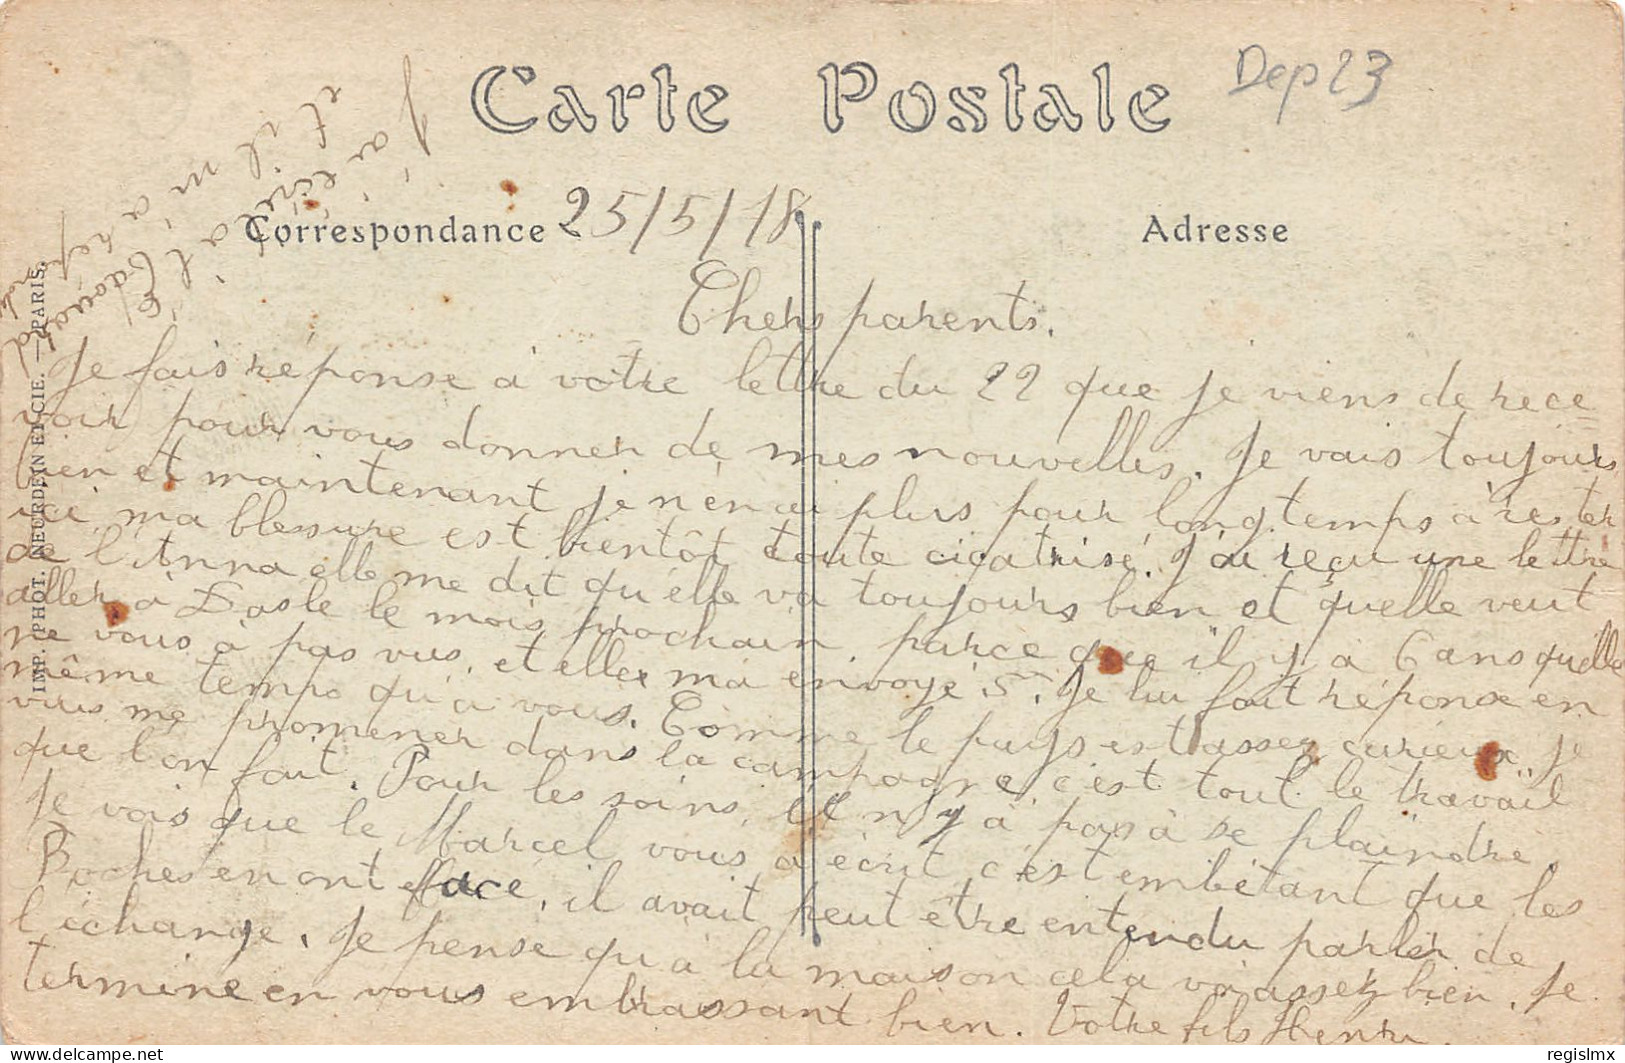 Carte Postale
Dep 23
Correspondance
25/5/18
Adresse
J'ai écrit à l'Edouard
et il m'a rep
IMP. PHOT. NEURDEIN ET CIE. — PARIS.
Chers parents.
Je fais réponse à votre lettre du 22 que je viens de rece
voir pour vous donner de mes nouvelles. Je vais toujours
bien et maintenant je n'en ai plus pour longtemps à rester
ici, ma blessure est bientôt toute cicatrisé. J'ai reçu une lettre
de l'Anna elle me dit qu'elle va toujours bien et quelle veut
aller à le mois prochain, parce que il y a 6 ans quelle
ne vous à pas vus, et elle ma envoyé 5f. Je lui fait réponse en
même temps qu'a vous. Comme le pays est assez curieux, je
vais me promener dans la campagne, c'est tout le travail
que l'on fait. Pour les soins, il n'y a pas à se plaindre.
Je vois que le Marcel vous a écrit, c'est embêtant que les
Boches en ont face, il avait peut être entendu parler de
l'échange. Je pense qu'à la maison cela va assez bien. Je
termine en vous embrassant bien. Votre fils Henri.
regislmx